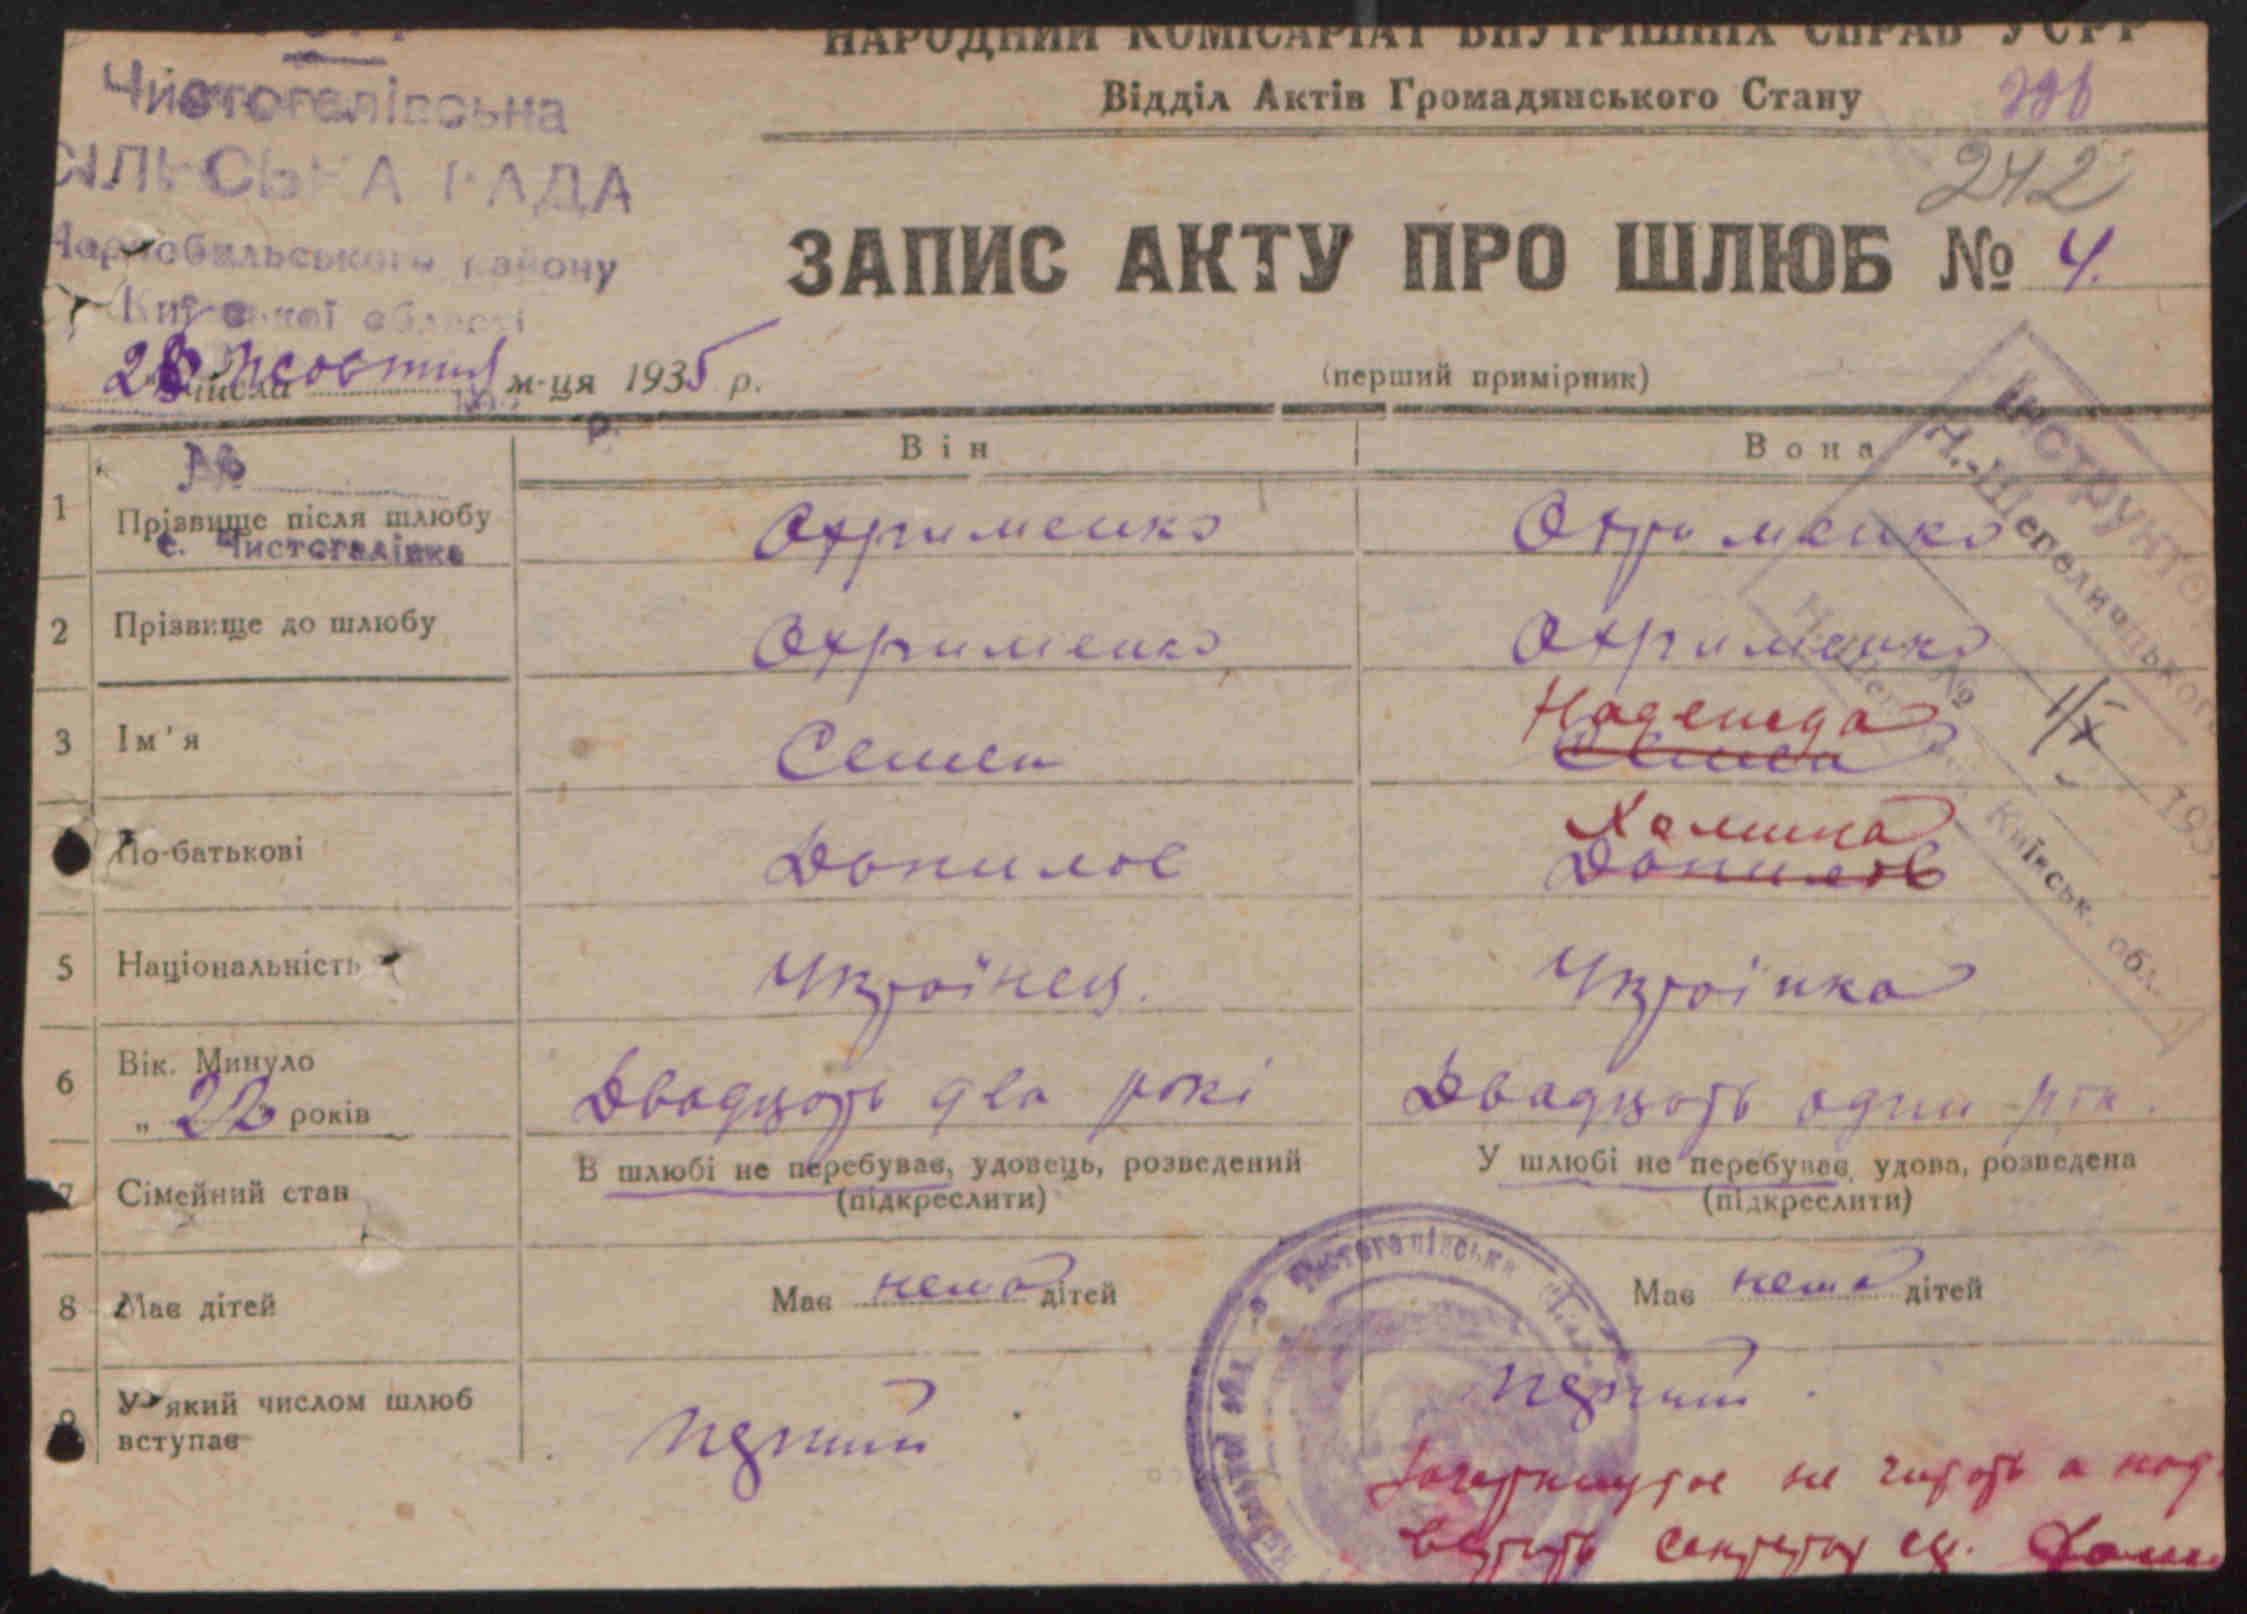 НАРОДНИЙ КОМІСАРІАТ ВНУТРІШНІХ СПРАВ УСРР
Відділ Актів Громадянського Стану
Чистогалівська
СІЛЬСЬКА РАДА
Чорнобильського району
Київської області
242
ЗАПИС АКТУ ПРО ШЛЮБ № 4.
28 числа жовтня м-ця 1935 р.
(перший примірник)
Він
Вона
№
1 Прізвище після шлюбу Охрименко Охрименко
с. Чистогалівка
2 Прізвище до шлюбу Охрименко Охрименко
Надежда
3 Ім'я Семен Семен
Халимна
По-батькові Данилов Данилов
5 Національність Українец. Українка
6 Вік. Минуло
„ 22 років Двадцать два рокі Двадцать один рік.
7 Сімейний стан В шлюбі не перебуває, удовець, розведений У шлюбі не перебуває, удова, розведена
(підкреслити) (підкреслити)
8 Має дітей Має нема дітей Має нема дітей
9 У який числом шлюб
вступає перший перший
Зачеркнутое не читать а над
верить секретар с/р.
Інструктор
Н.-Шепелицького
Київськ. обл.
1/X
193
Чистогалівська